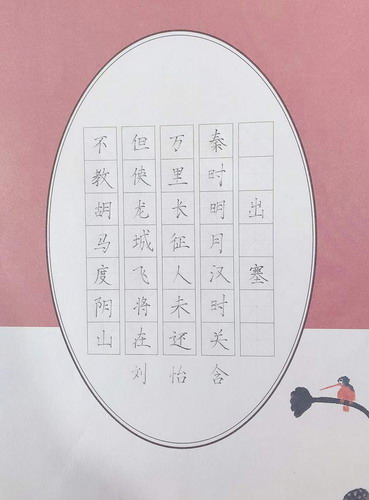 出塞
秦时明月汉时关
万里长征人未还
但使龙城飞将在
不教胡马度阴山
刘怡含